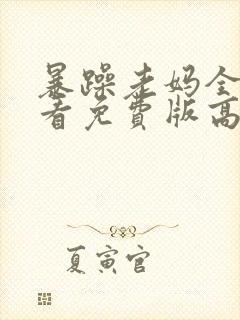 暴躁老妈全
看免费版高
夏寅官